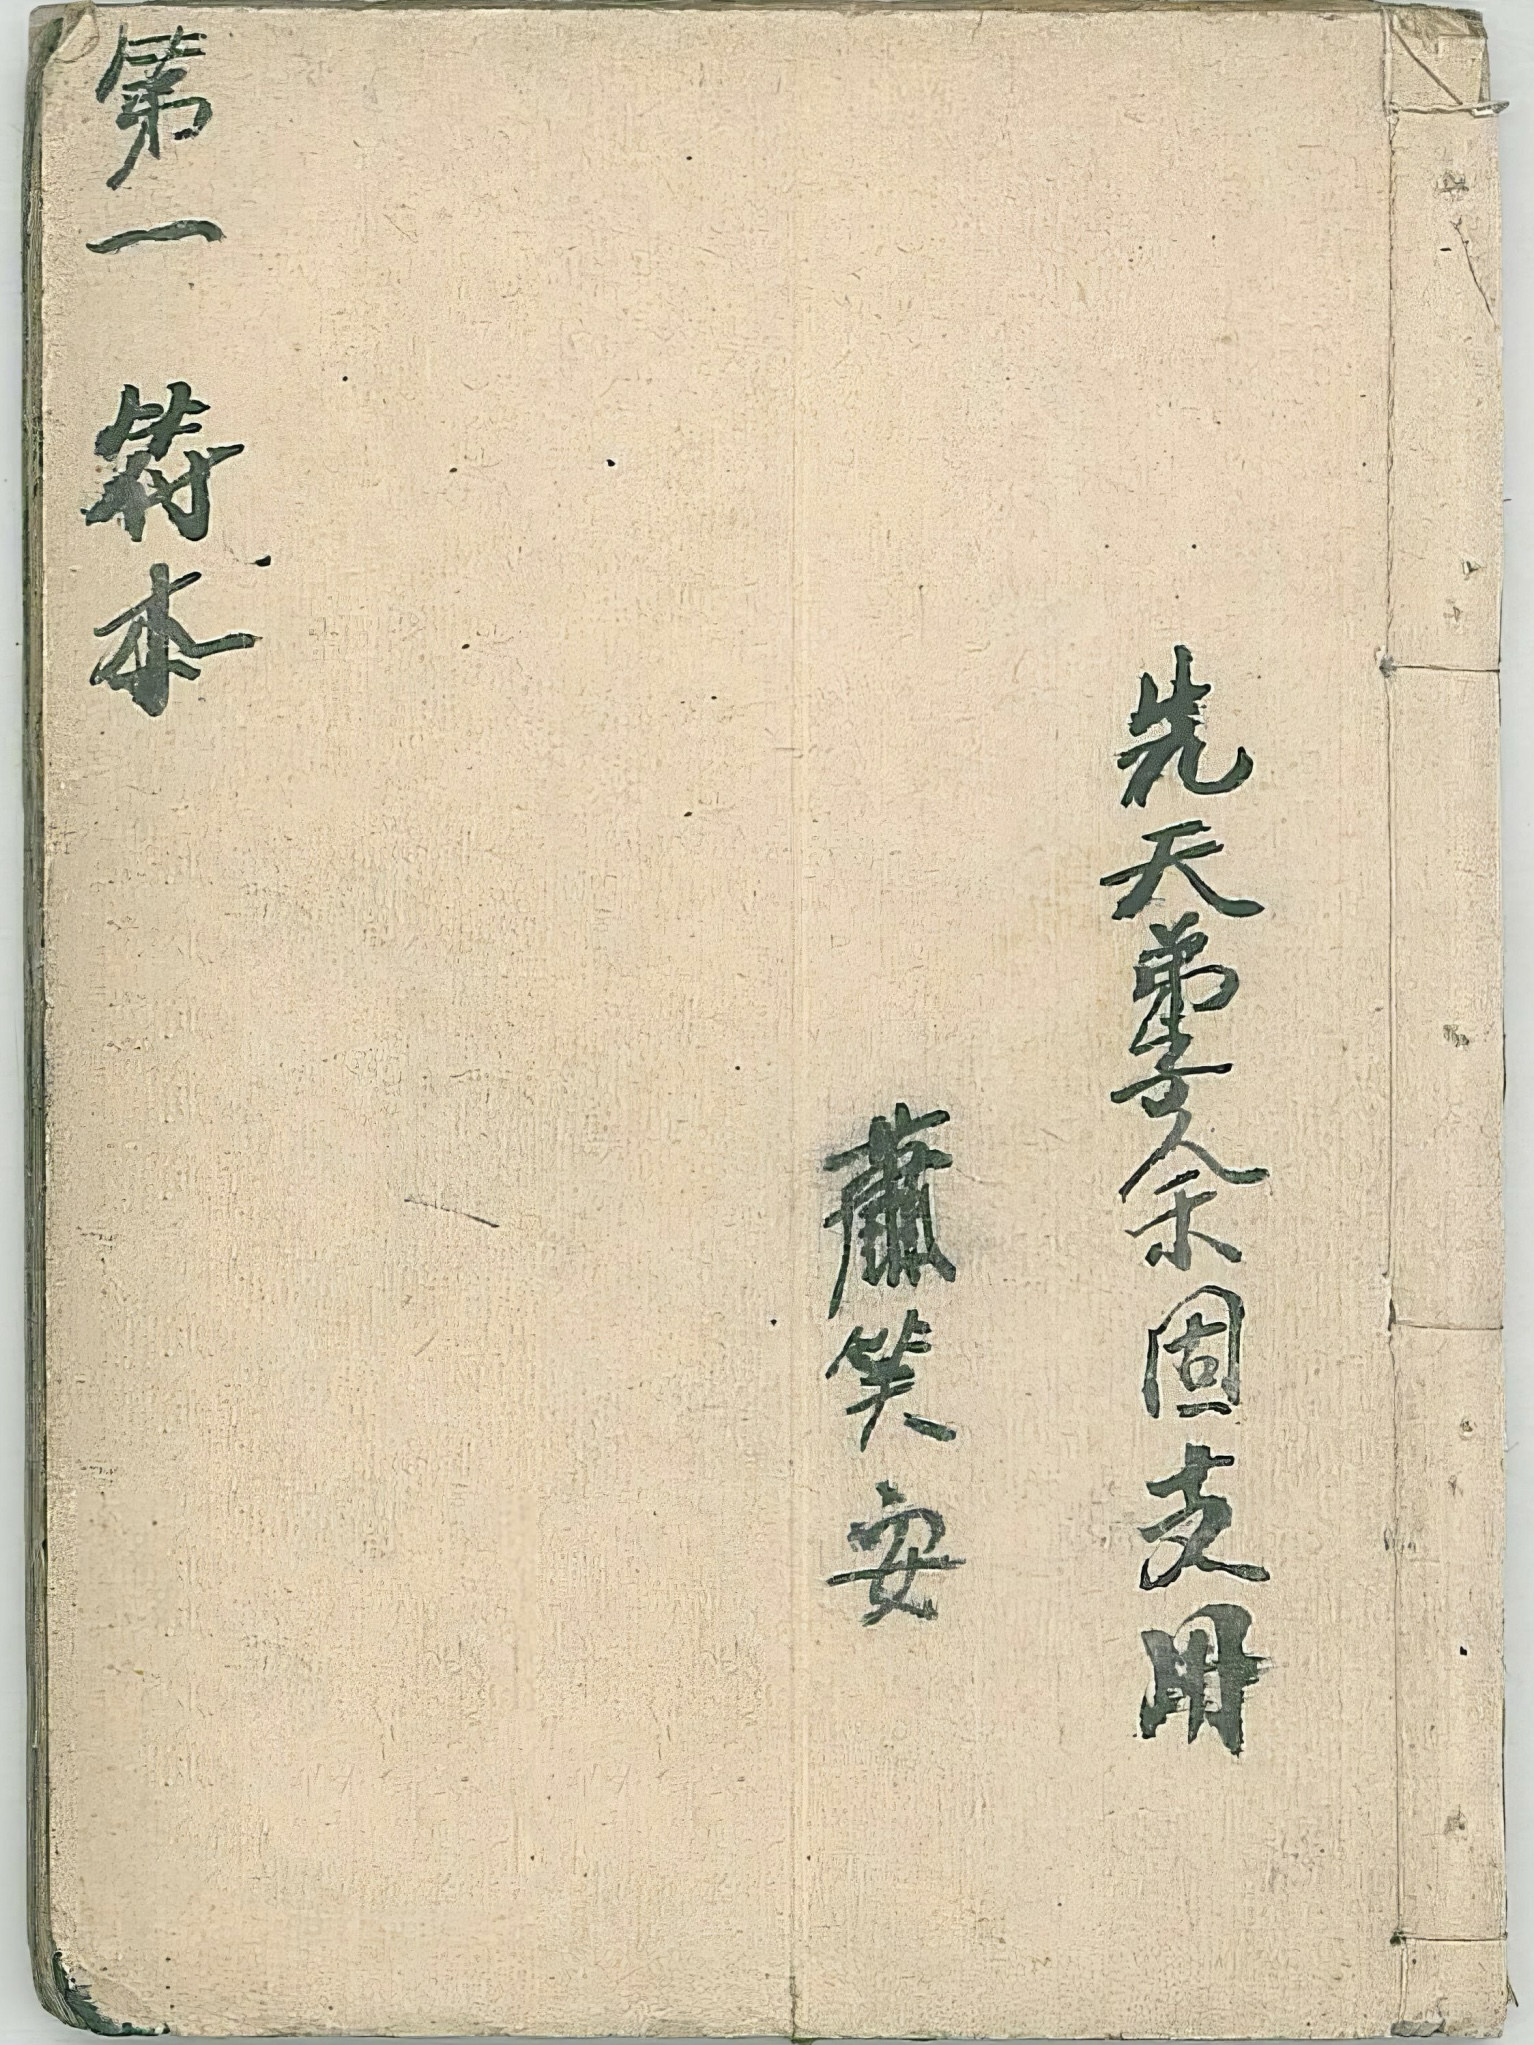 先天弟子余固支用
蕭笑安
第一 符本